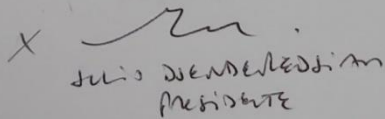 X
JULIO DJENDEREDJIAN
PRESIDENTE